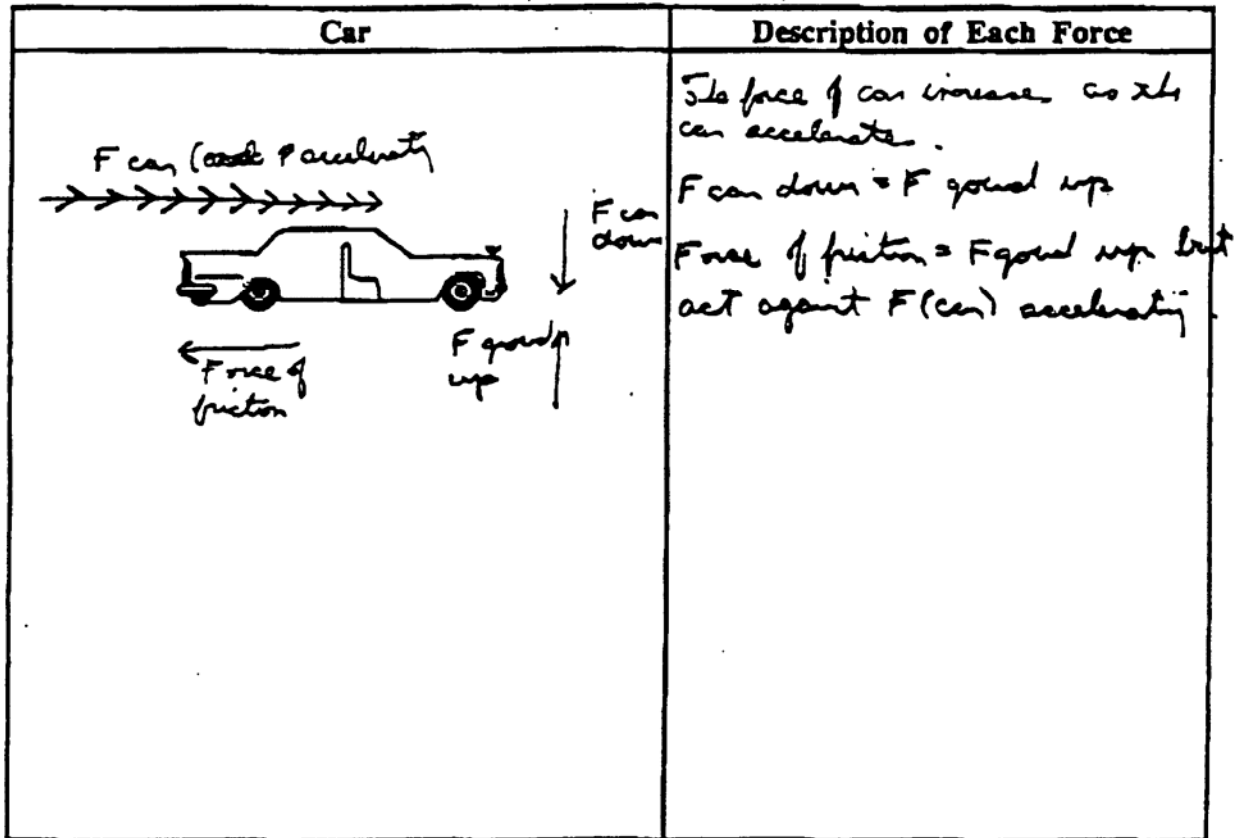 Car
Description of Each Force
F car ( accelerating
F car
down
F ground
up
Force of
friction
The force of car increases as the
car accelerate.
F car down = F gound up
Force of friction = F gound up but
act against F (car) accelerating.